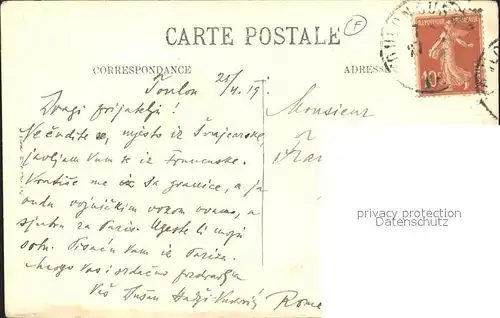 CARTE POSTALE
F
CORRESPONDANCE
ADRESSE
RÉPUBLIQUE FRANÇAISE
10c
Toulon 25/4.19.
Dragi prijatelji!
Ne čudite se, mjesto iz Švajcarske,
javljam Vam se iz Francuske.
Vratiše me iz sa granice, a ja
onda vojničkim vozom ovamo, a
sjutra za Pariz. Ugeste li moju
. Pisaću Vam iz Pariza.
Mnogo Vas i srdačno pozdravlja
Vaš Dušan
Monsieur
Fra
Rome
privacy protection
Datenschutz